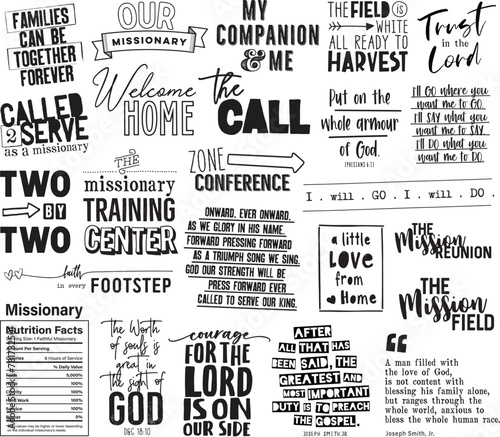 FAMILIES
CAN BE
TOGETHER
FOREVER
OUR
MISSIONARY
MY
COMPANION
& ME
THE FIELD IS
WHITE
ALL READY TO
HARVEST
Trust
in the
Lord
CALLED
2 SERVE
as a missionary
Welcome
HOME
the
CALL
Put on the
whole armour
of God.
EPHESIANS 6:11
I'll GO where you
want me to GO.
I'll SAY what you
want me to SAY.
I'll DO what you
want me to DO.
TWO
BY
TWO
THE
missionary
TRAINING
CENTER
ZONE
CONFERENCE
I . will . GO . I . will . DO .
ONWARD, EVER ONWARD,
AS WE GLORY IN HIS NAME.
FORWARD PRESSING FORWARD
AS A TRIUMPH SONG WE SING.
GOD OUR STRENGTH WILL BE
PRESS FORWARD EVER
CALLED TO SERVE OUR KING.
a little
LOVE
from
Home
THE
Mission
REUNION
faith
in every
FOOTSTEP
THE
Mission
FIELD
Missionary
Nutrition Facts
Size: 1 Faithful Missionary
Per Serving
8 Hours of Service
% Daily Value
5,000%
100%
100%
100%
100%
100%
0%
the Worth
of souls is
great in
the sight of
GOD
D&C 18:10
courage
FOR THE
LORD
IS ON
OUR SIDE
AFTER
ALL THAT HAS
BEEN SAID, THE
GREATEST AND
MOST IMPORTANT
DUTY IS TO PREACH
THE GOSPEL.
JOSEPH SMITH JR.
“
A man filled with
the love of God,
is not content with
blessing his family alone,
but ranges through the
whole world, anxious to
bless the whole human race.
Joseph Smith, Jr.